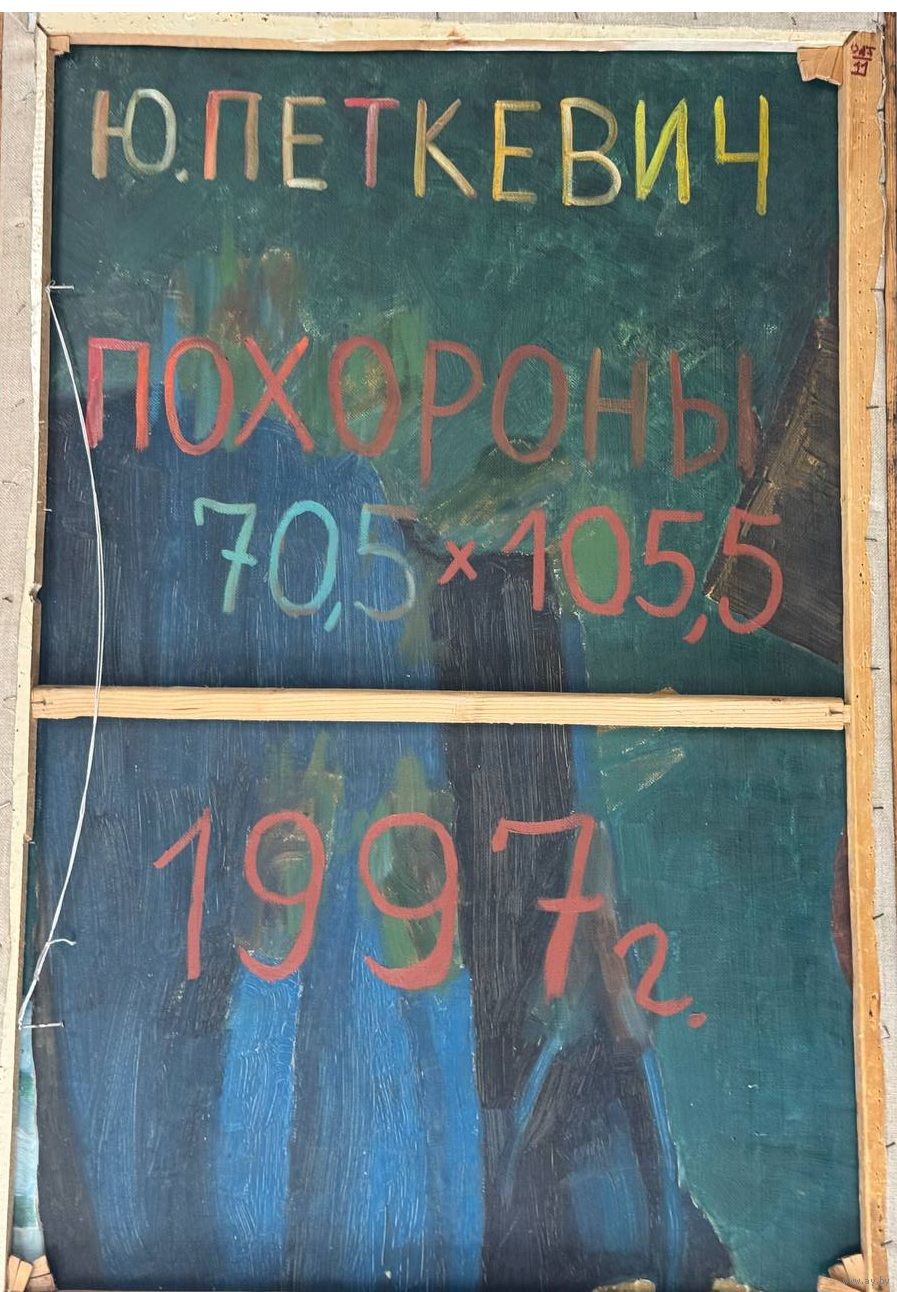 Ю. ПЕТКЕВИЧ
ПОХОРОНЫ
70,5 × 105,5
1997 г.
www.ay.by